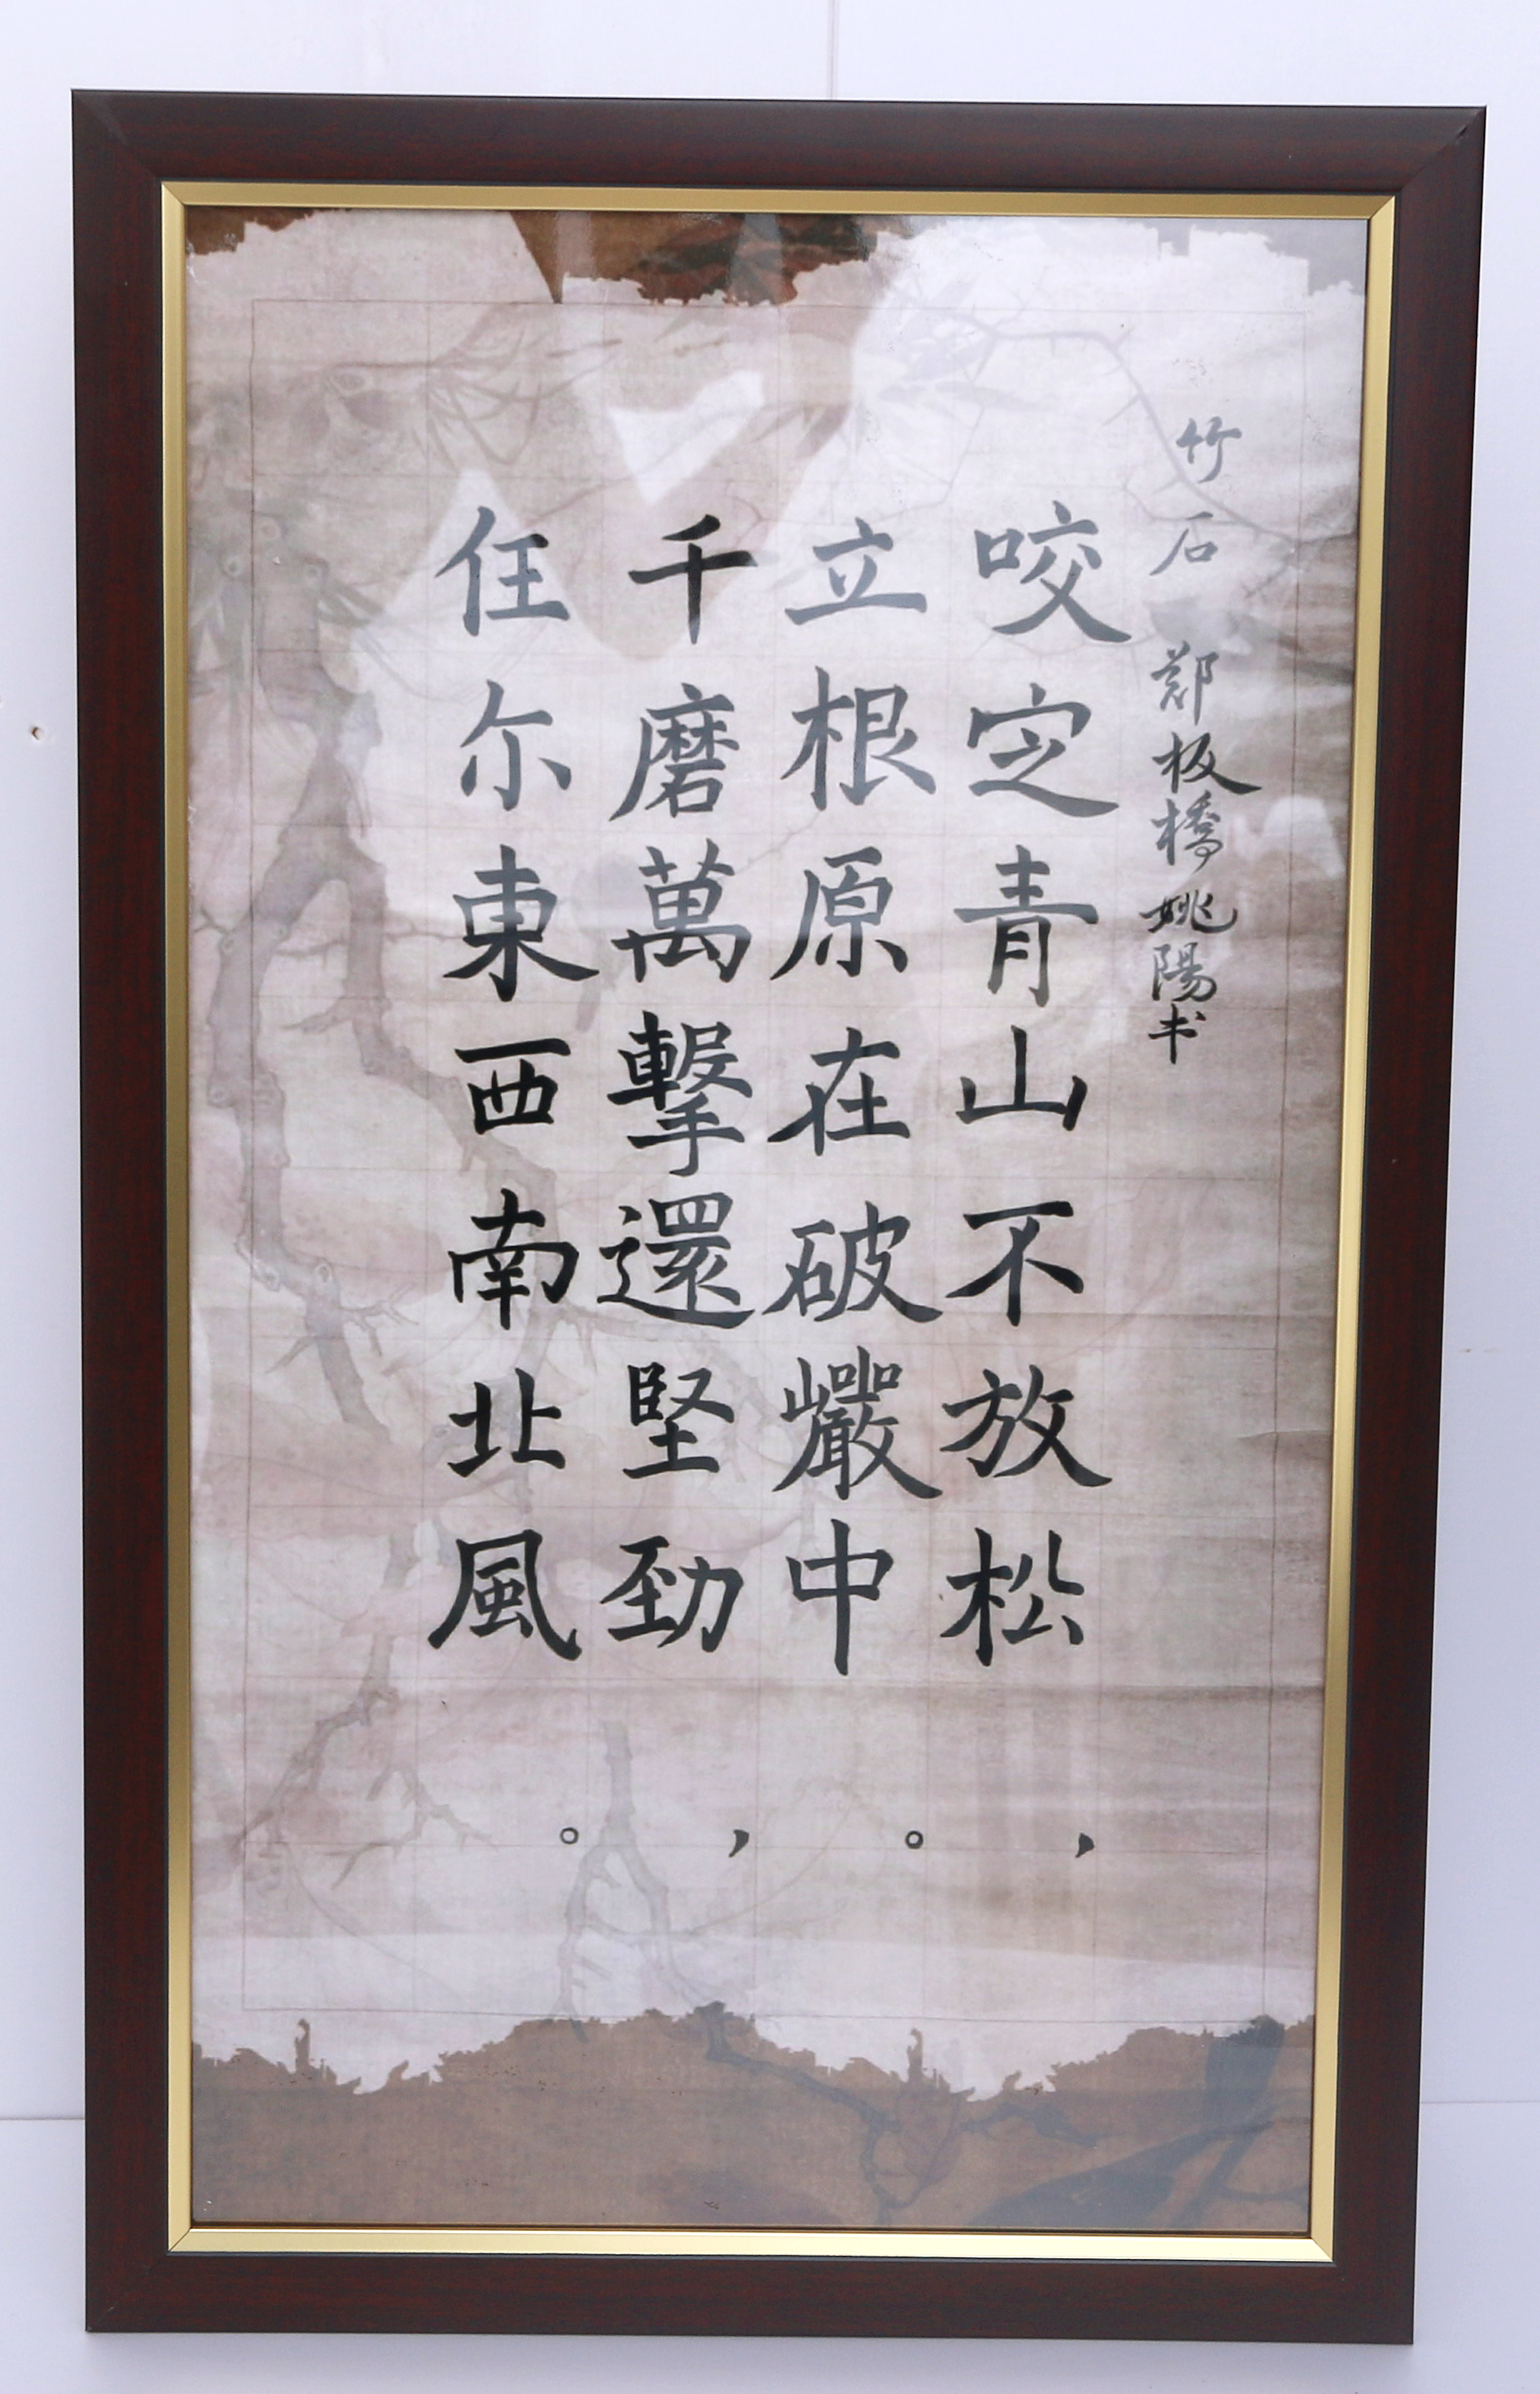 竹石 鄭板橋 姚陽书
咬定青山不放松，
立根原在破巖中。
千磨萬擊還堅勁，
任尔東西南北風。